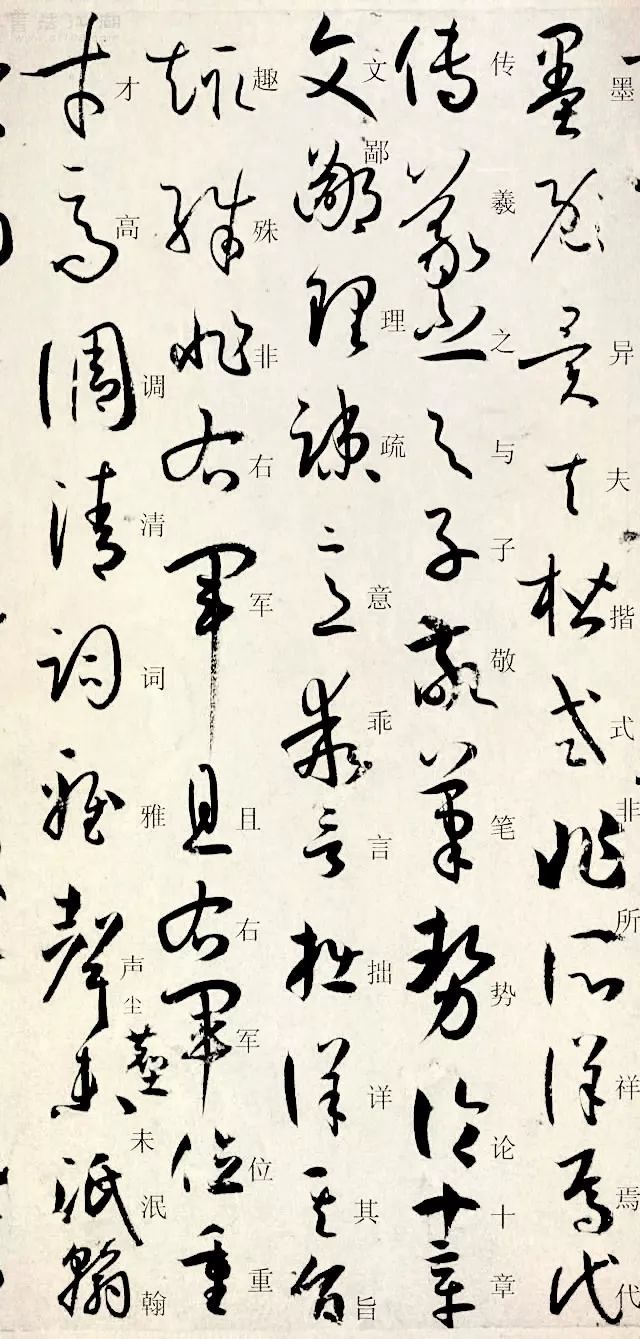 墨异夫揩式非所祥焉代
传羲之与子敬笔势论十章
文鄙理疏意乖言拙详其旨
趣殊非右军且右军位重
才高调清词雅声尘未泯翰